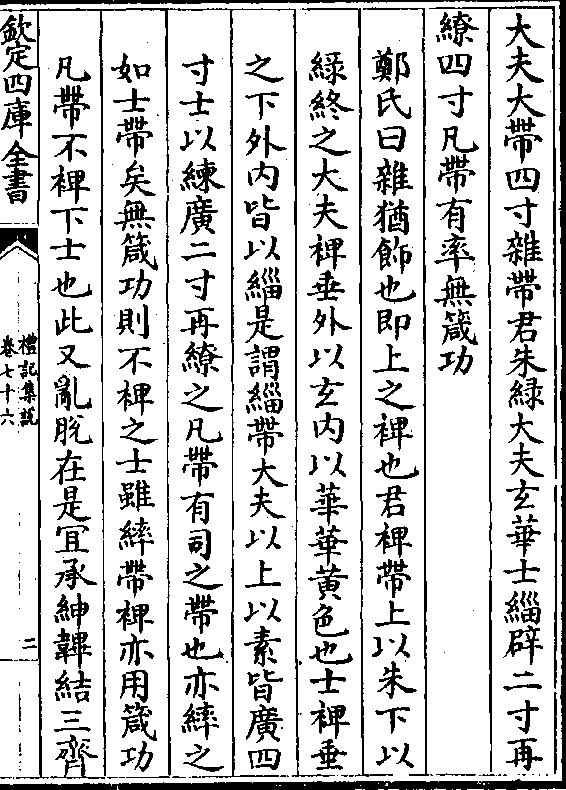 大夫大帶四寸雜帶君朱綠大夫玄華士緇辟二寸再
繚四寸凡帶有率無箴功
鄭氏曰雜猶飾也即上之裨也君裨帶上以朱下以
綠終之大夫裨垂外以玄内以華華黄色也士裨垂
之下外内皆以緇是謂緇帶大夫以上以素皆廣四
寸士以練廣二寸再繚之凡帶有司之帶也亦繂之
如士帶矣無箴功則不裨之士雖繂帶裨亦用箴功
凡帶不裨下士也此又亂脫在是宜承紳韠結三齊
欽定四庫全書
禮記集說
卷七十六
二